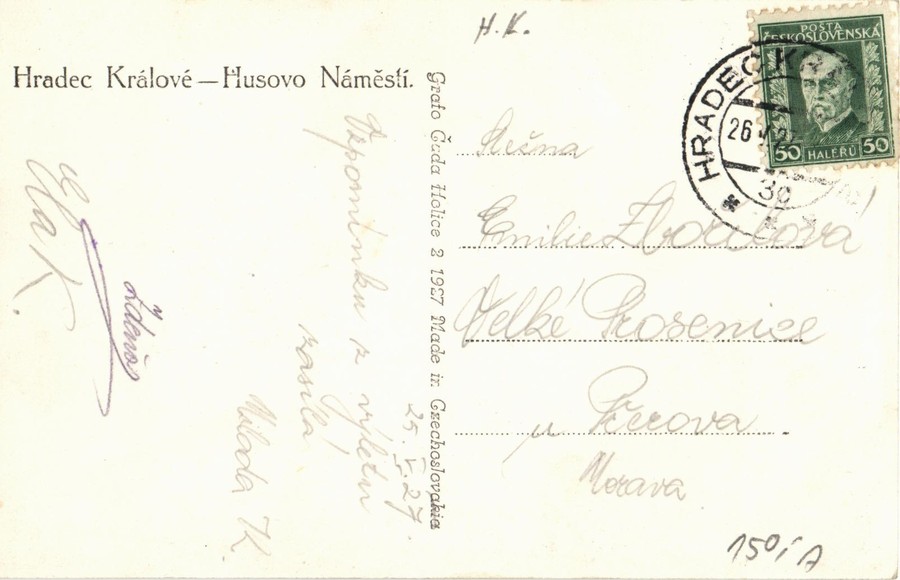 H. K.
Hradec Králové — Husovo Náměstí.
POŠTA
ČESKOSLOVENSKÁ
50 HALÉŘŮ 50
HRADEC KRÁ
26
3c
Slečna
Emilie
Velké Prosenice
u Přerova
Morava
Grafo Čuda Holice 2 1927 Made in Czechoslovakia
25. V. 27.
Vzpomínku z výletu
zasílá
Milada K.
150 A